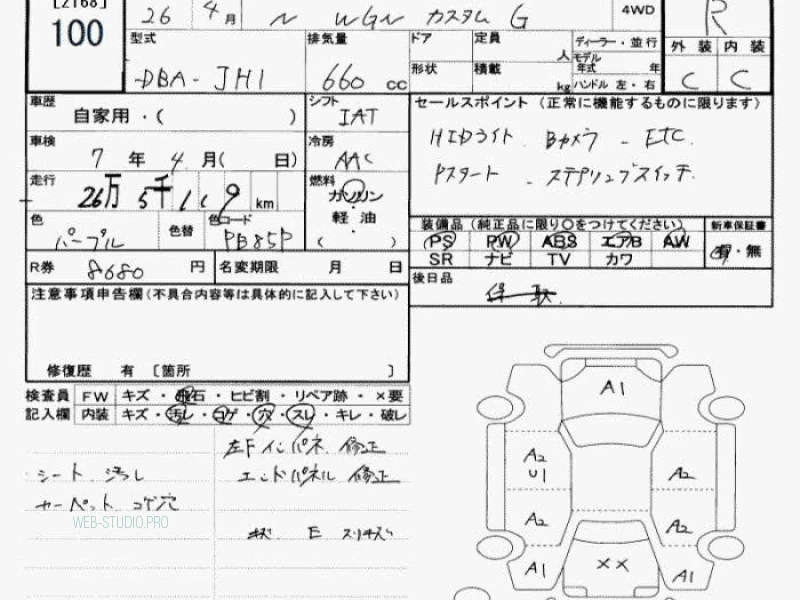 [2168]
100
26 4月 N WGN カスタム G 4WD R
型式 DBA-JH1
排気量 660 cc
ドア 定員 人
形状 積載 kg
ディーラー・並行
モデル年式 年
ハンドル 左・右
外装 内装
C C
車歴 自家用・( )
シフト IAT
車検 7年 4月( 日)
冷房 AAC
走行 26万 5千 119 km
燃料 ガソリン
軽油
( )
色 パープル 色替 色コード PB85P
R券 8680 円 名変期限 月 日
セールスポイント (正常に機能するものに限ります)
HIDライト Bカメラ - ETC
Pスタート - ステアリングスイッチ
装備品 (純正品に限り○をつけてください) 新車保証書
PS PW ABS エアB AW 有・無
SR ナビ TV カワ
後日品
注意事項申告欄(不具合内容等は具体的に記入して下さい)
修復歴 有 〔箇所 〕
検査員 FW キズ・飛石・ヒビ割・リペア跡・×要
記入欄 内装 キズ・汚し・コゲ・穴・スレ・キレ・破し
左Fインパネ 修正
シート 汚し エンドパネル 修正
カーペット コゲ穴
WEB-STUDIO.PRO
E スリキズ
A1
A2
U1
A2
A2
A2
A1 XX A1